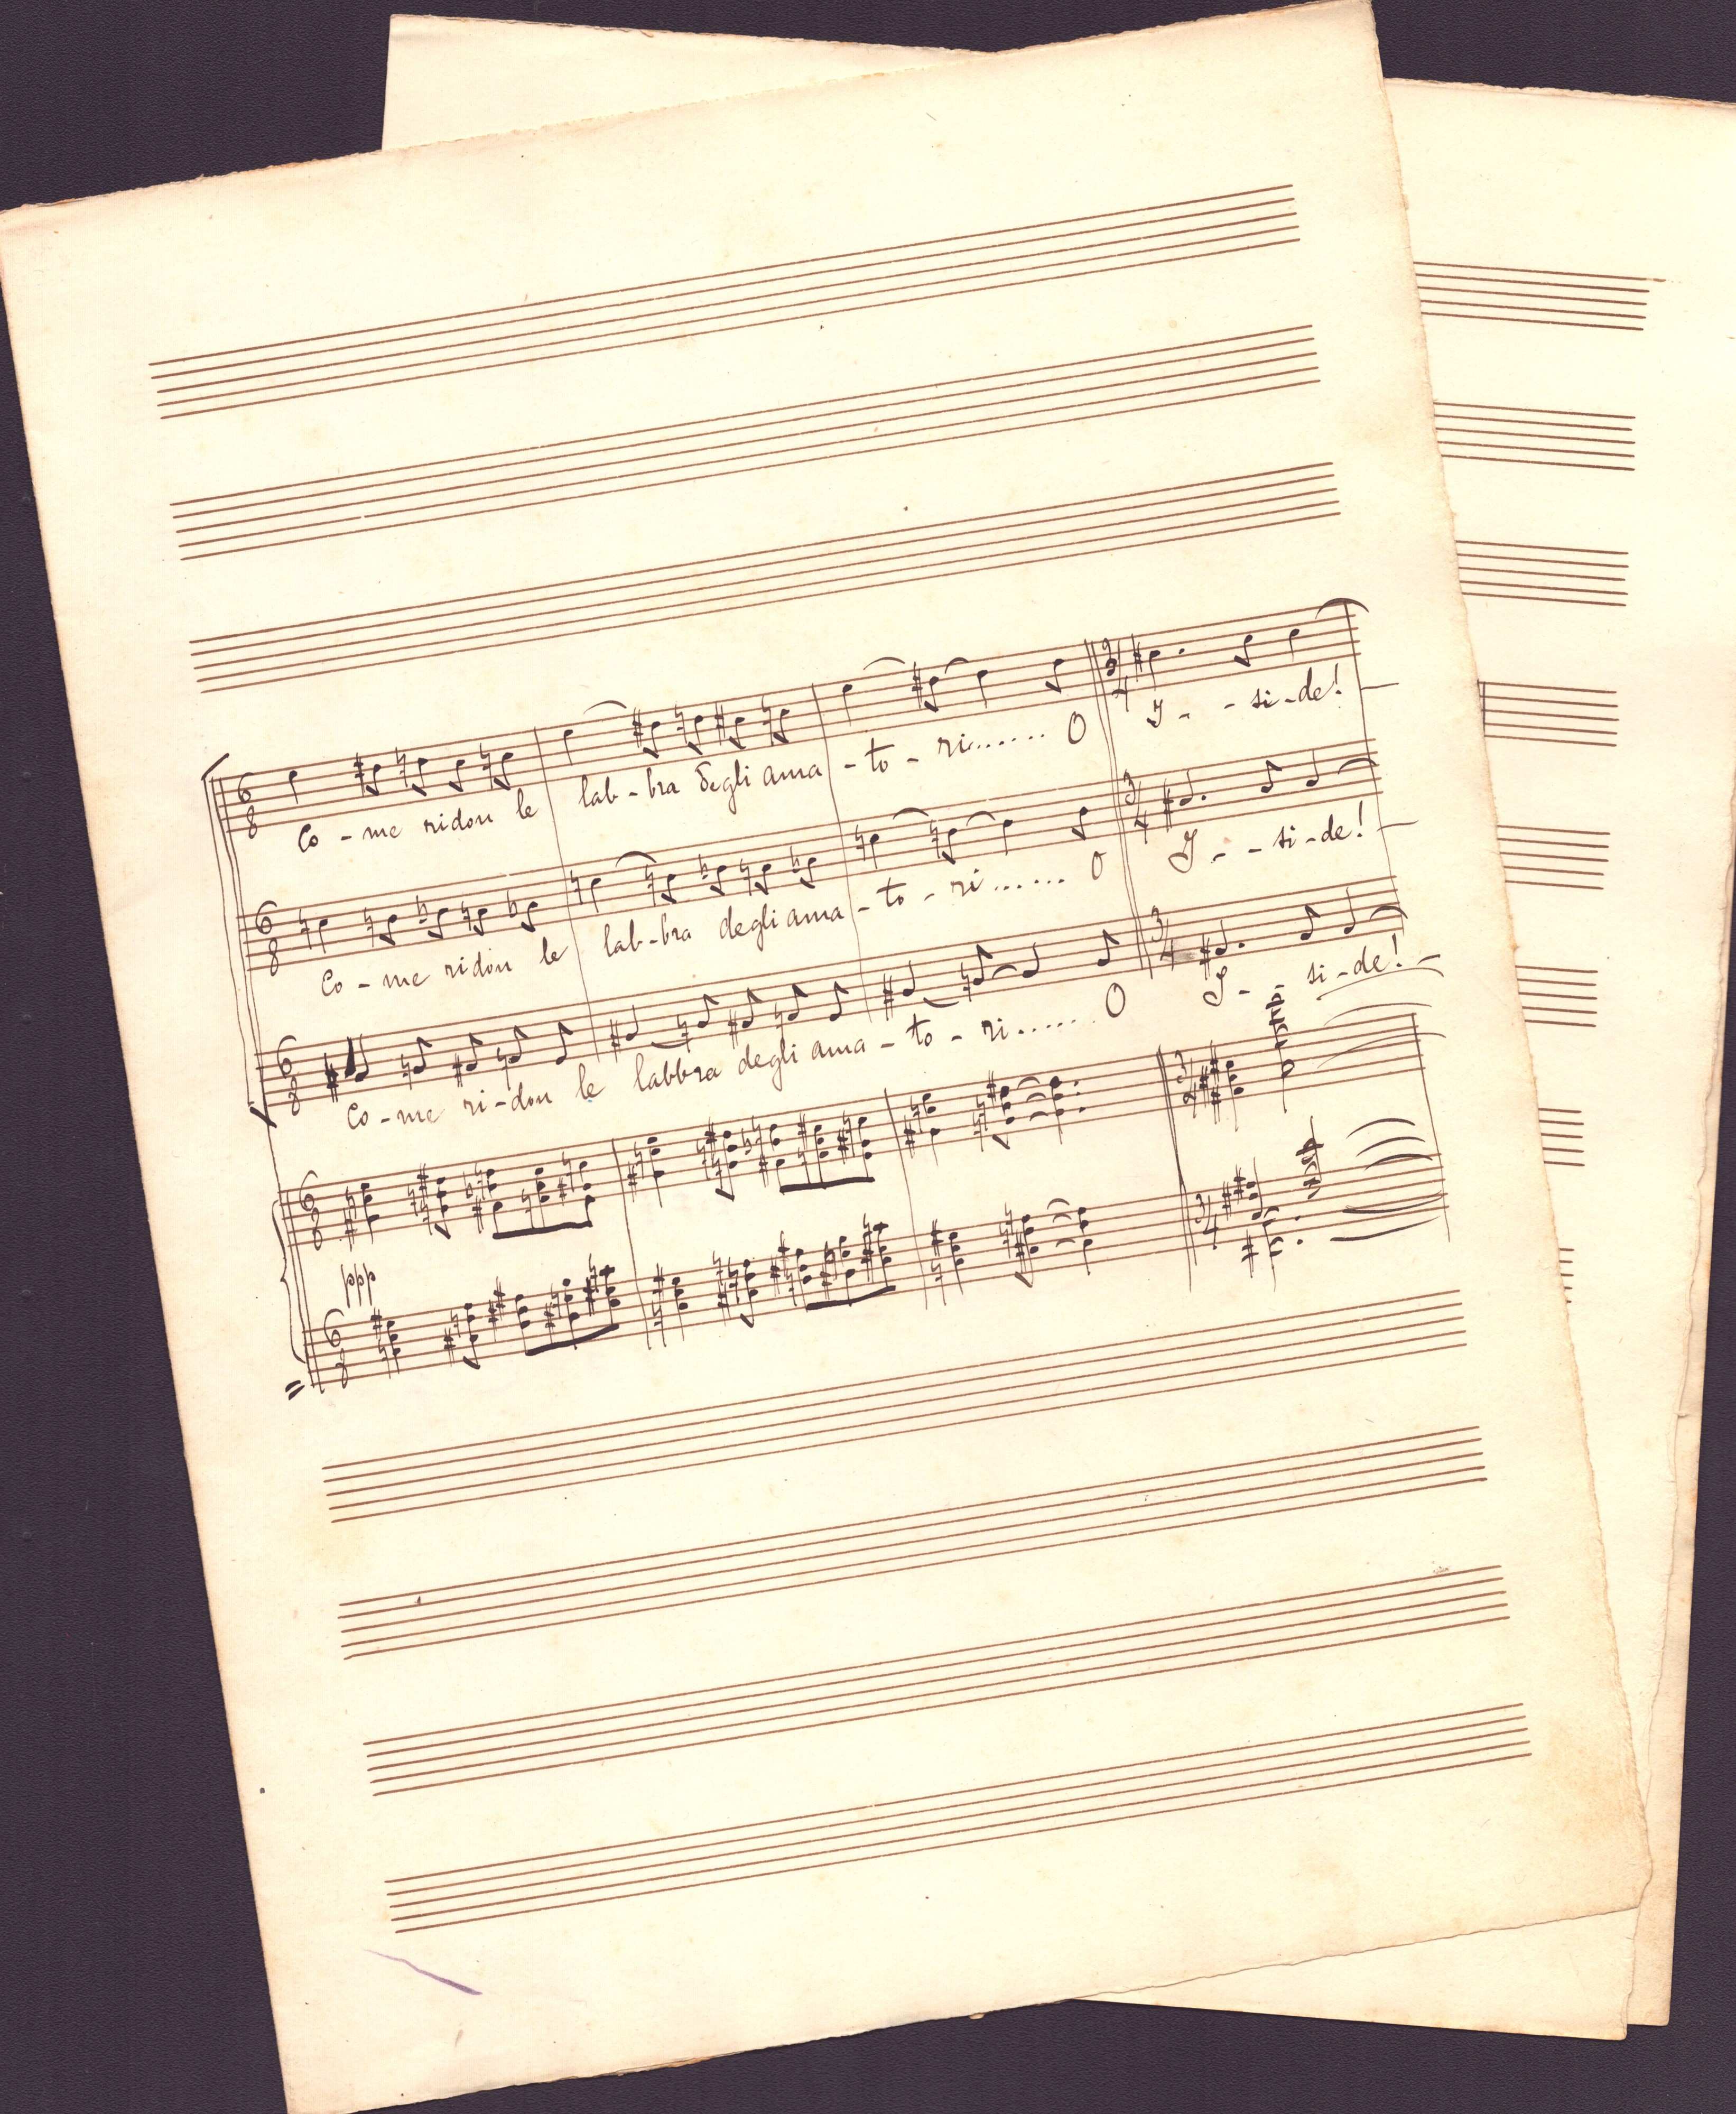 6 8 Co - me ridon le lab - bra degli ama - to - ri...... O 3 4 Y - - si - de! —
6 8 Co - me ridon le lab - bra degli ama - to - ri...... O 3 4 Y - - si - de! —
6 8 Co - me ri - don le labbra degli ama - to - ri...... O 3 4 Y - - si - de! —
6 8 3 4
ppp
6 8 3 4